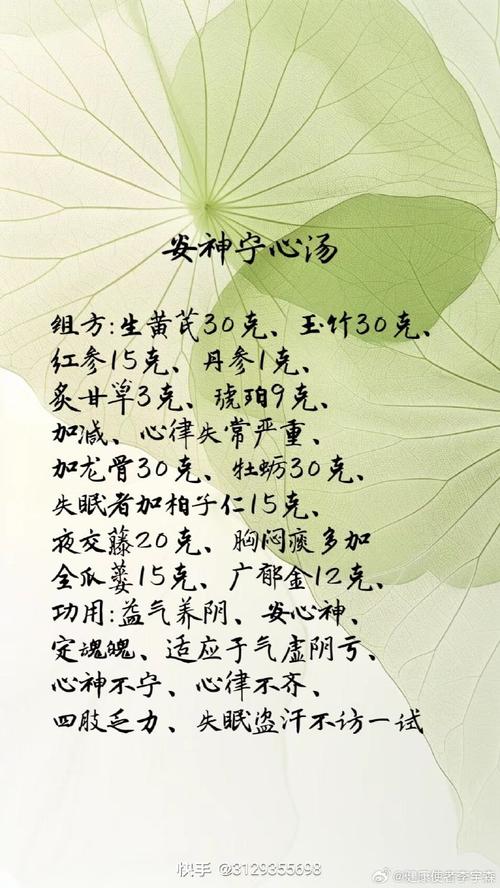 安神宁心汤
组方:生黄芪30克、玉竹30克、
红参15克、丹参1克、
炙甘草3克、琥珀9克、
加减、心律失常严重、
加龙骨30克、牡蛎30克、
失眠者加柏子仁15克、
夜交藤20克、胸闷痰多加
全瓜蒌15克、广郁金12克、
功用:益气养阴、安心神、
定魂魄、适应于气虚阴亏、
心神不宁、心律不齐、
四肢乏力、失眠盗汗不访一试
快手 @3129355698
@健康使者李宇森